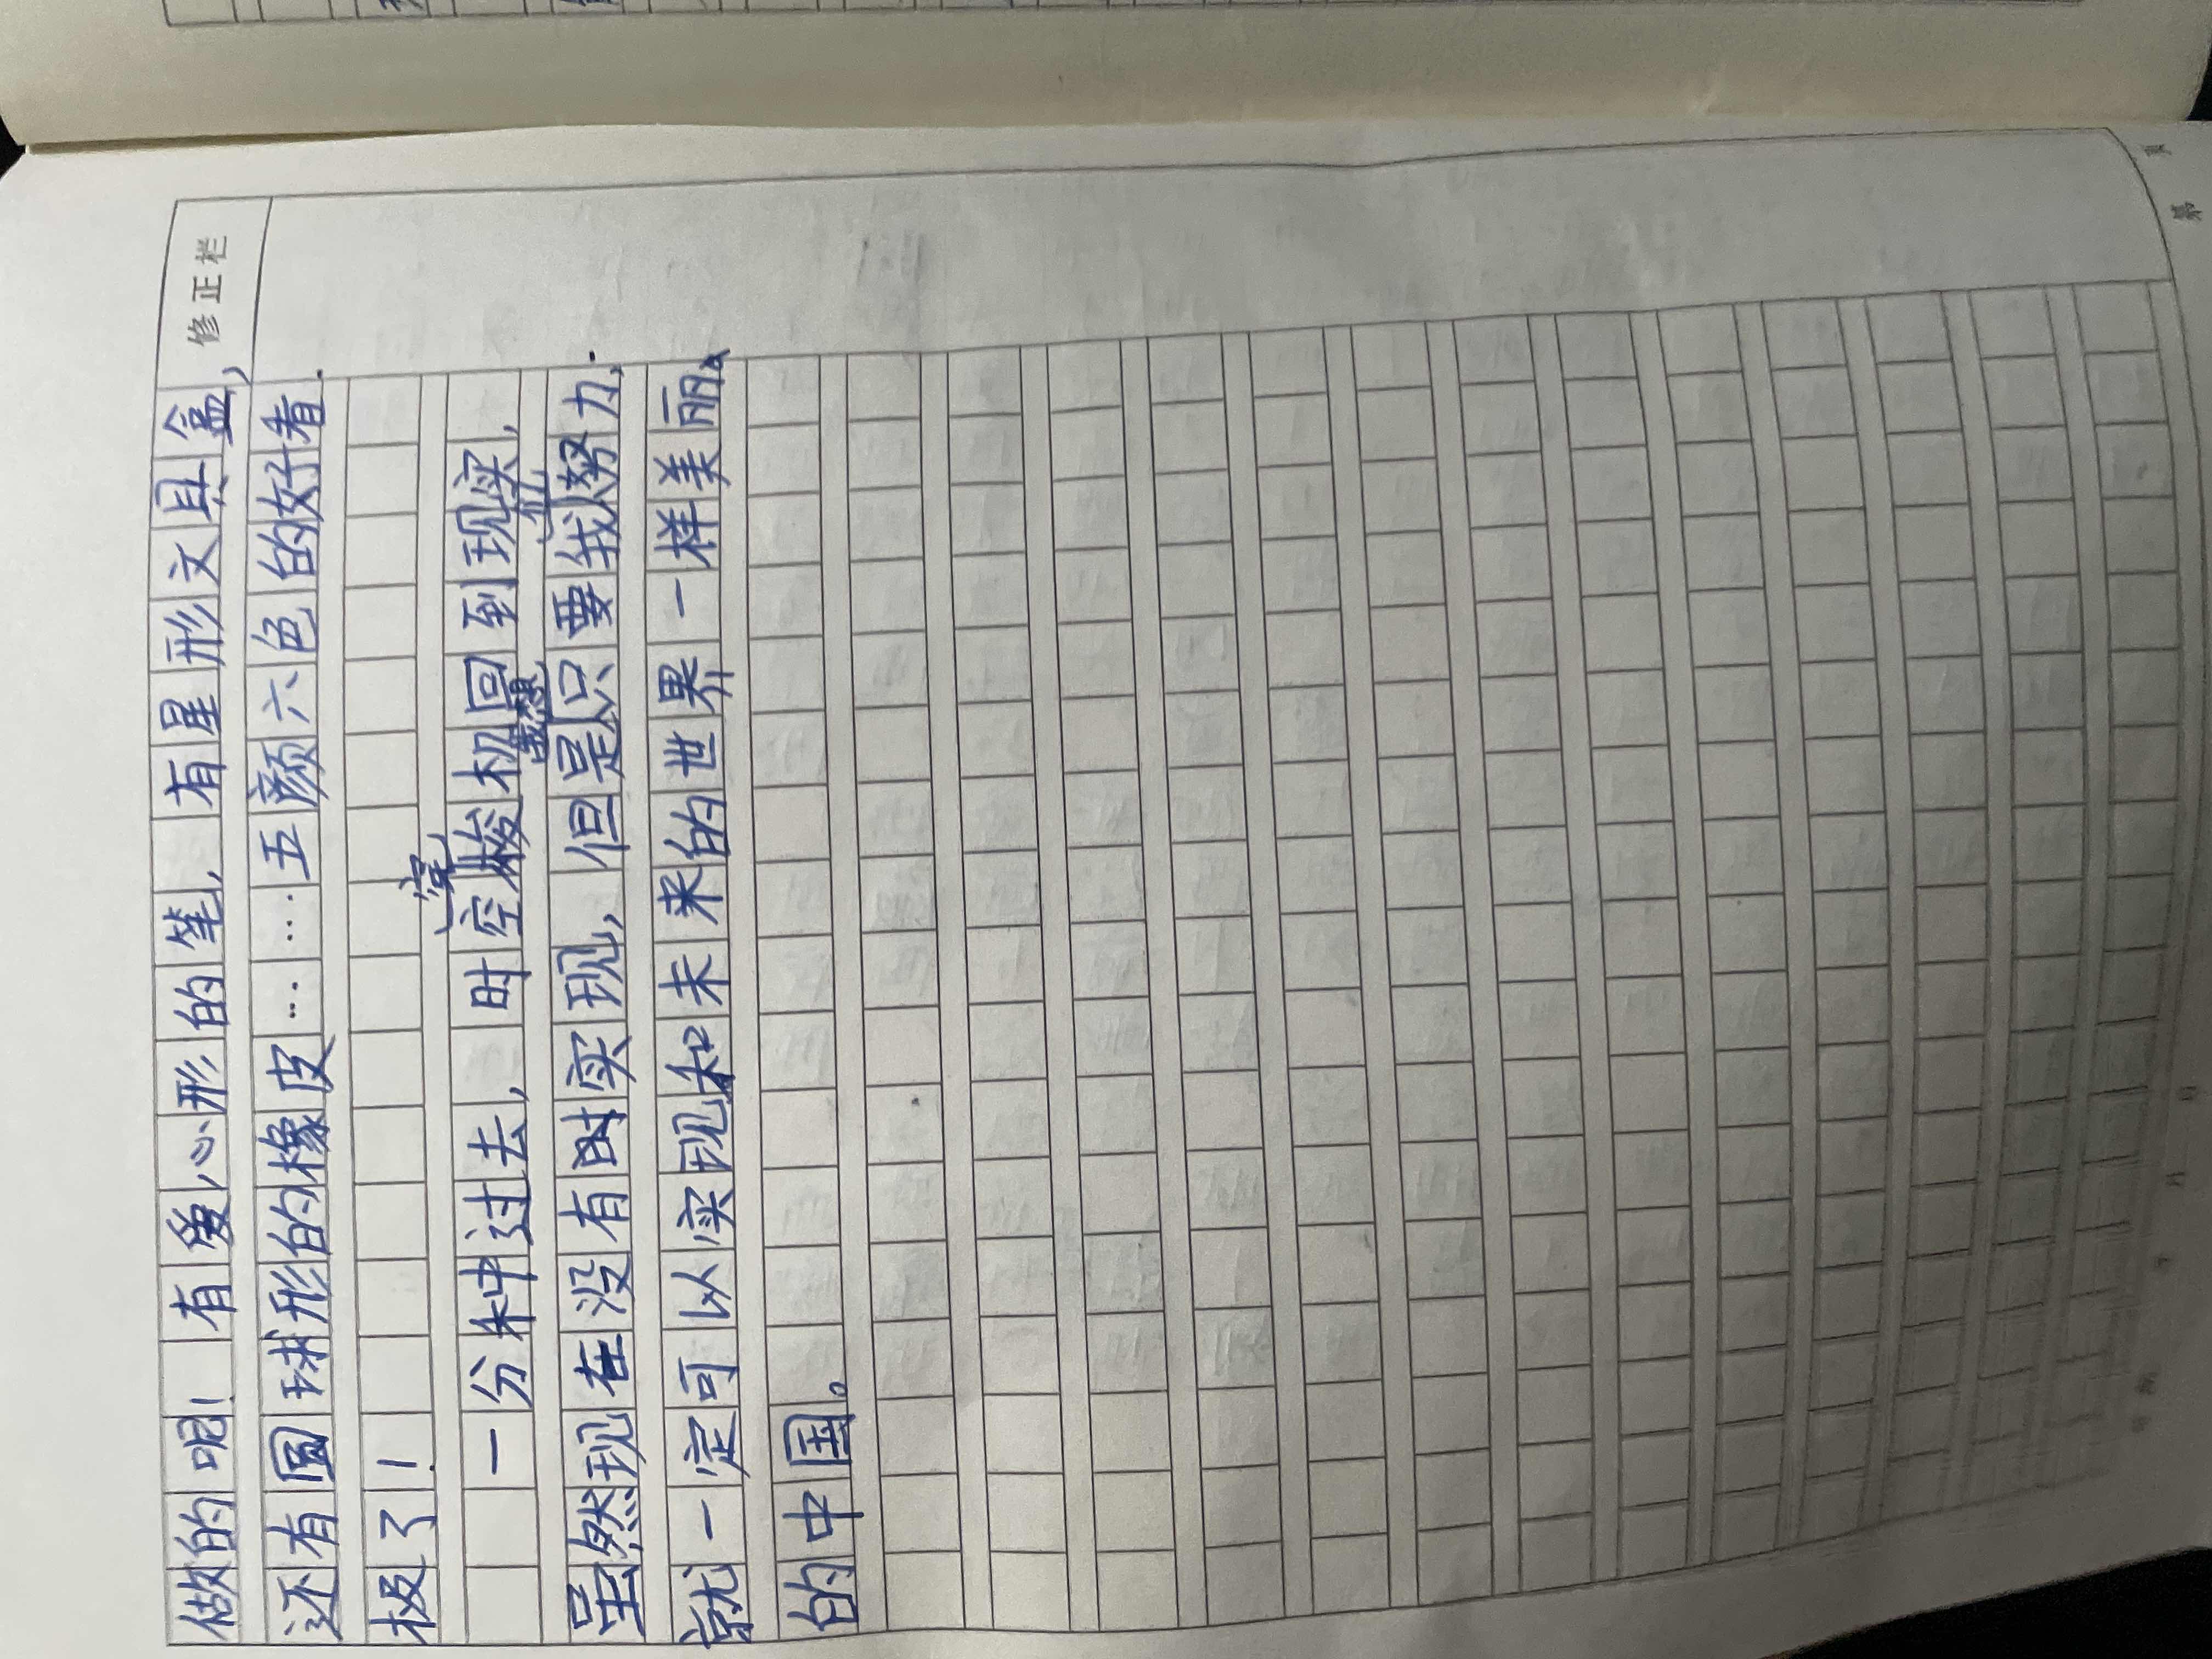 修正栏
做的呢！有爱心形的笔，有星形文具盒，
还有圆球形的橡皮………五颜六色的好看
极了！
一分钟过去，时空穿梭机回到现实，
虽然现在没有时实现，但是我想只要我们努力，
就一定可以实现和未来的世界一样美丽
的中国。
第 页